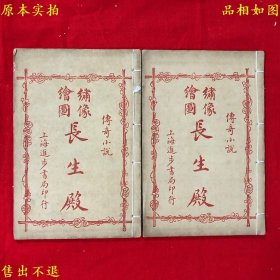 原本实拍
品相如图
傳奇小説
繡像
繪圖
長生殿
上海進步書局印行
傳奇小説
繡像
繪圖
長生殿
上海進步書局印行
售出不退